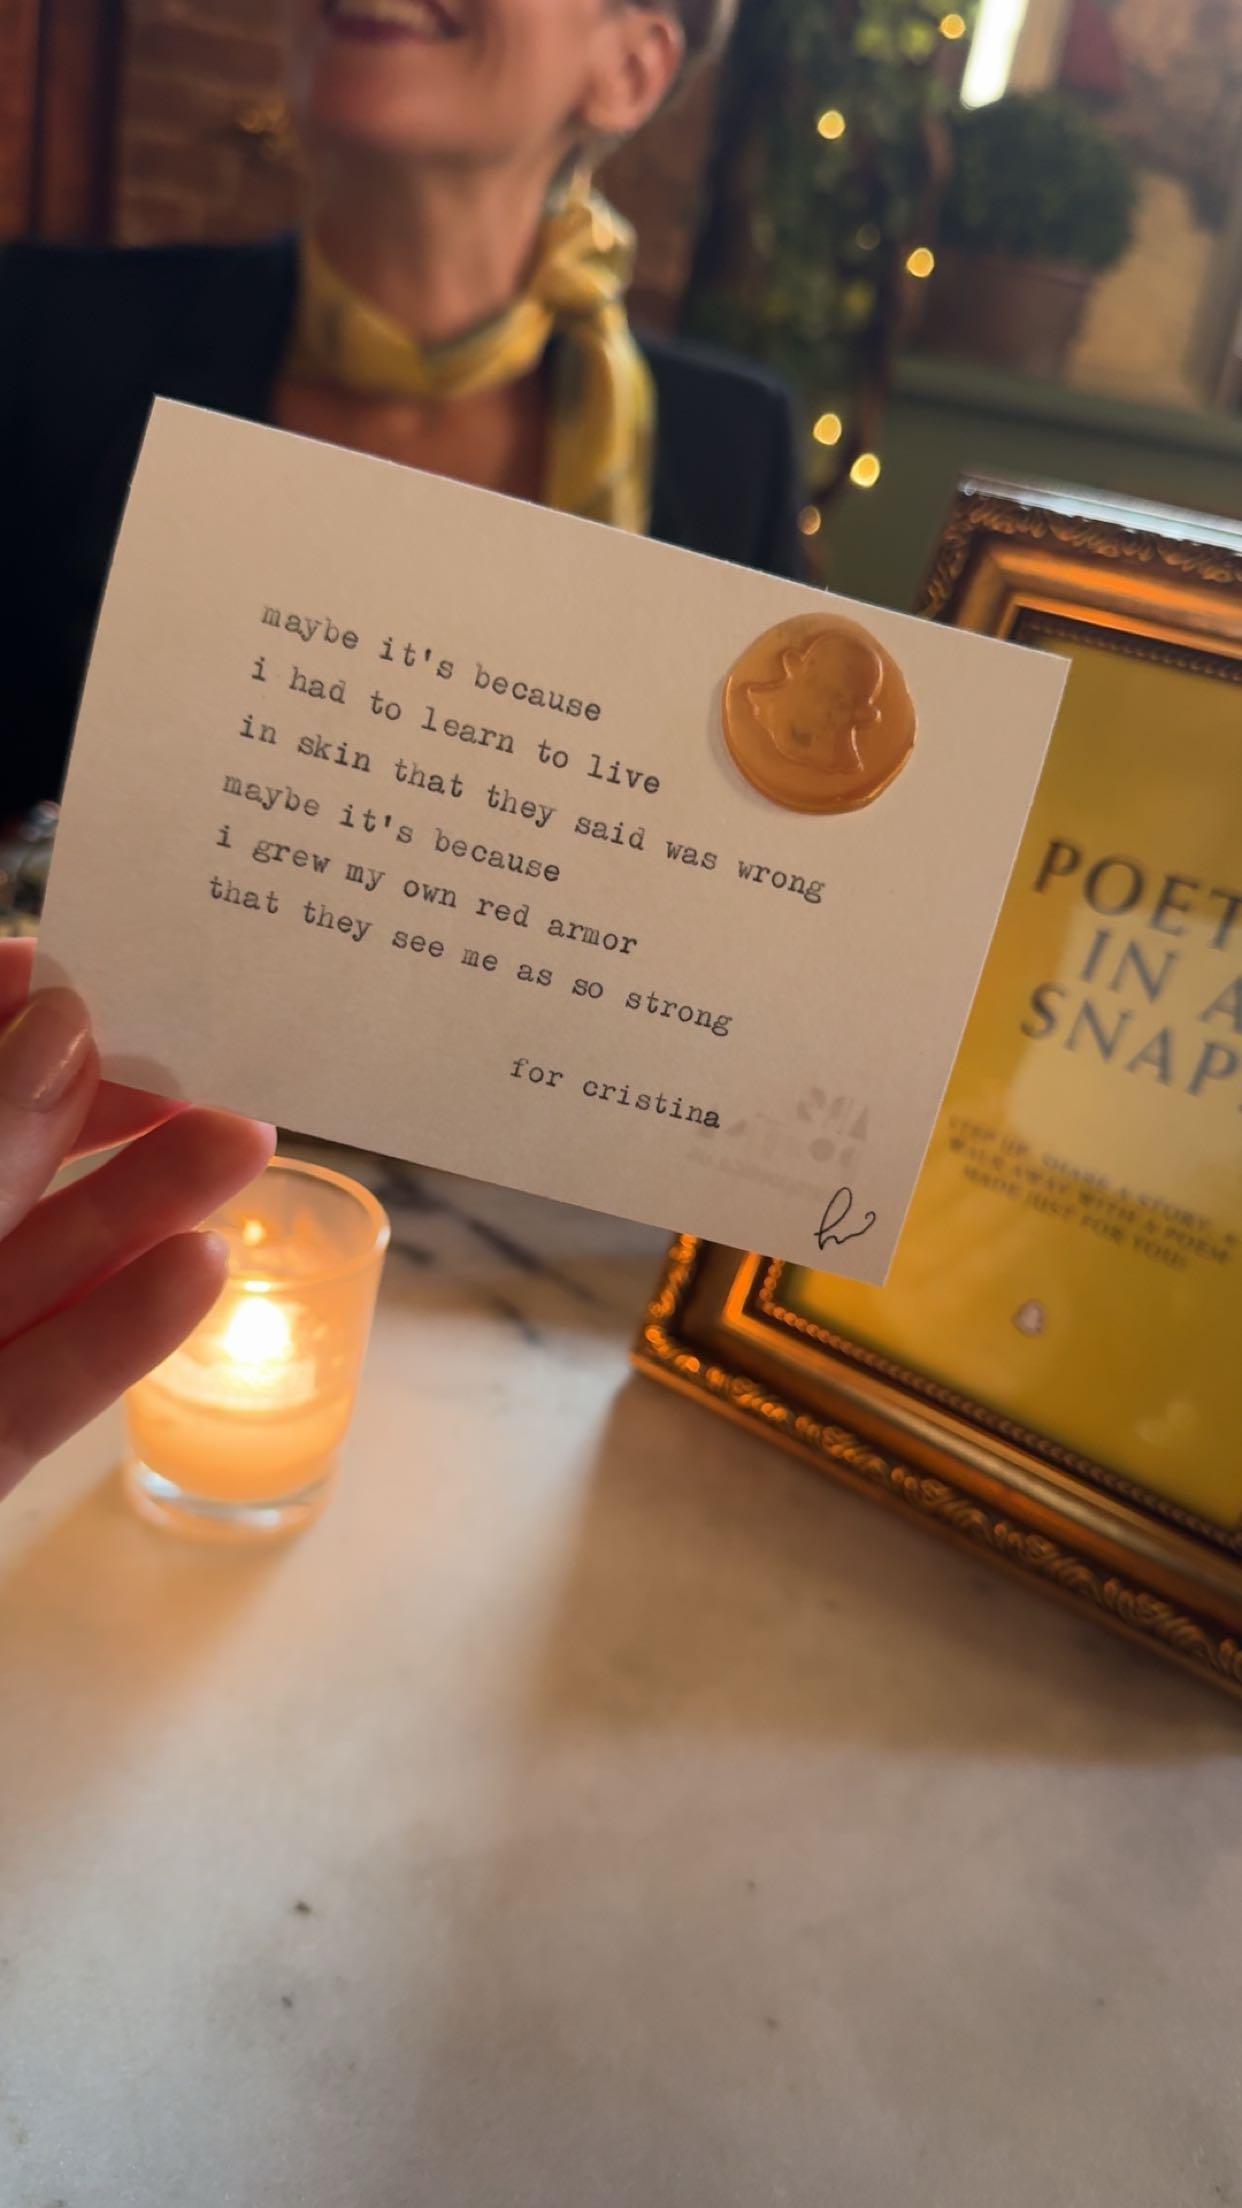 maybe it's because
i had to learn to live
in skin that they said was wrong
maybe it's because
i grew my own red armor
that they see me as so strong
for cristina
POET
IN A
SNAP
STEP UP, SHARE A STORY, &
WALK AWAY WITH A POEM
MADE JUST FOR YOU!